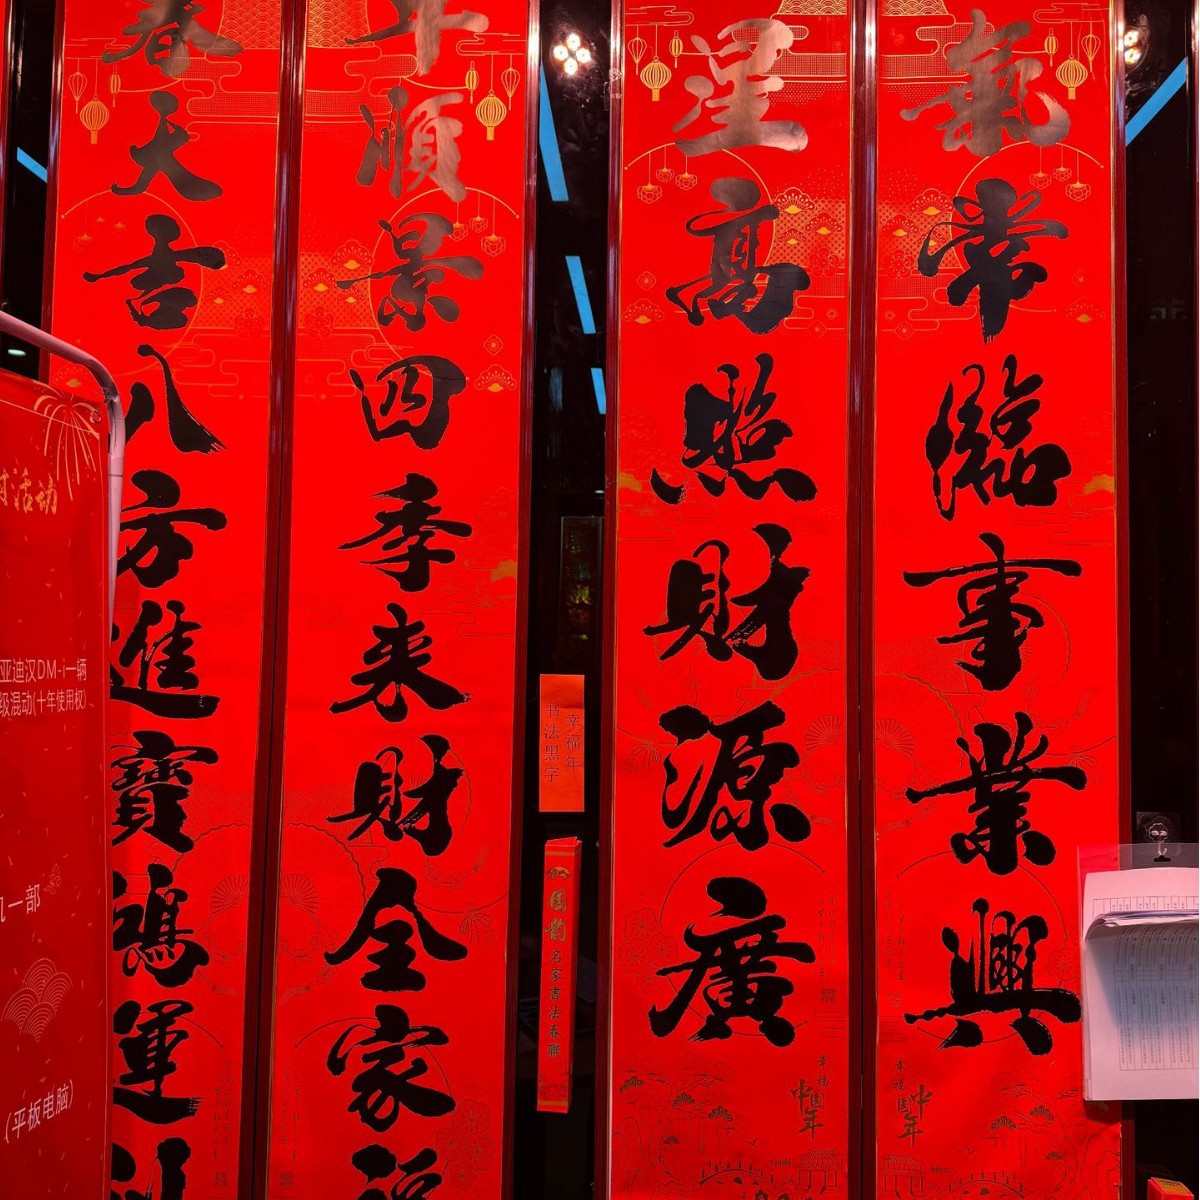 春天吉八方進寶鴻運
年順景四季來財全家福
星高照財源廣
氣常臨事業興
活动
亚迪汉DM-i一辆
级混动(十年使用权)
一部
(平板电脑)
幸福年
书法黑字
國韵
名家書法春聯
幸福
中国年
幸福
中国年